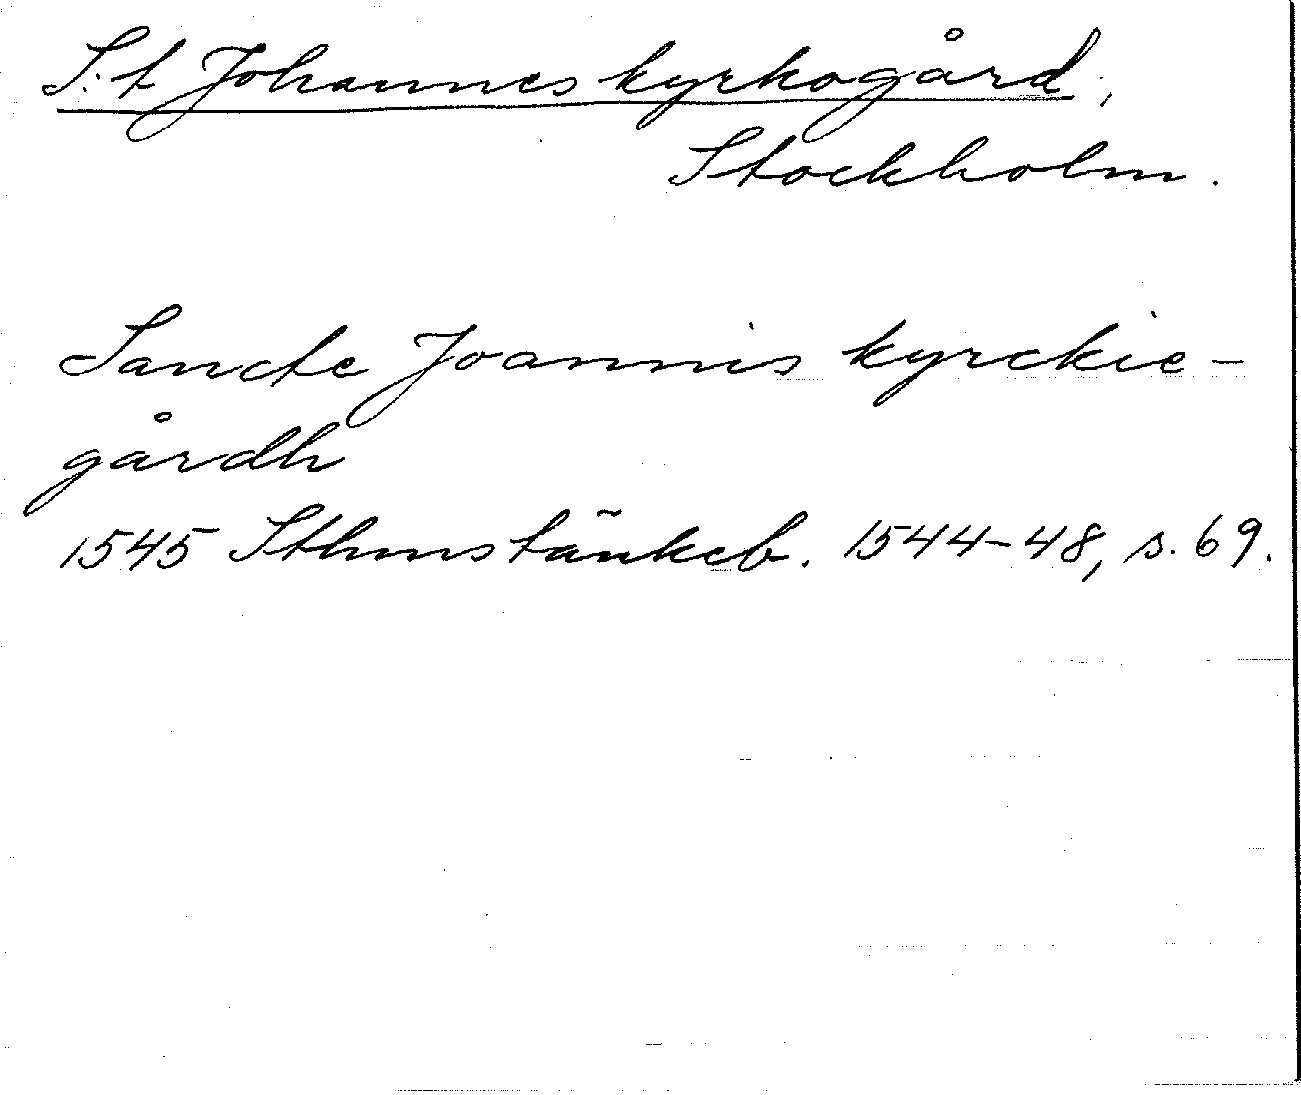 S:t Johannes kyrkogård,
Stockholm.
Sancte Joannis kyrckie-
gårdh
1545 Sthms tänkeb. 1544-48, s. 69.